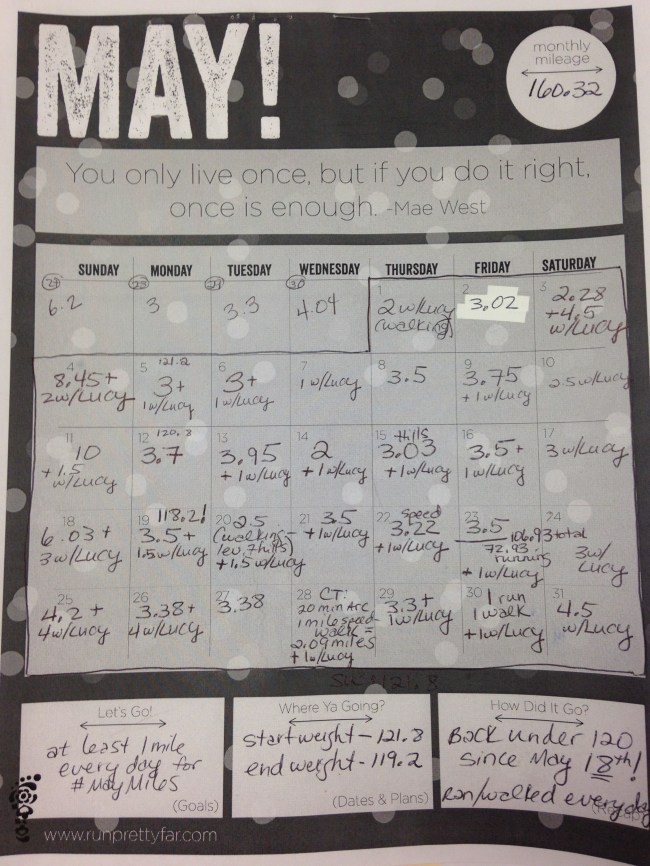 MAY!
monthly
mileage
160.32
You only live once, but if you do it right,
once is enough. -Mae West
SUNDAY MONDAY TUESDAY WEDNESDAY THURSDAY FRIDAY SATURDAY
27 28 29 30 1 2 3
6.2
3
3.3
4.04
2 w/Lucy
(walking)
3.02
2.28
+4.5
w/Lucy
4
8.45+
2w/Lucy
5 121.2
3+
1w/Lucy
6
3+
1w/Lucy
7
1 w/Lucy
8
3.5
9
3.75
+1w/Lucy
10
2.5 w/Lucy
11
10
+1.5
w/Lucy
12 120.8
3.7
13
3.95
+1 w/Lucy
14
2
+1 w/Lucy
15 Hills
3.03
+1w/Lucy
16
3.5+
1w/Lucy
17
3 w/Lucy
18
6.03+
3w/Lucy
19 118.2!
3.5+
1.5w/Lucy
20 2.5
(walking-
lev. 7 hills)
+1.5w/Lucy
21 3.5
+1w/Lucy
22 speed
3.22
+1w/Lucy
23
3.5
106.93 total
72.93
running
+1w/Lucy
24
3w/
Lucy
25
4.2+
4w/Lucy
26
3.38+
4w/Lucy
27
3.38
28 CT:
20 min Arc
1 mile speed-
walk =
2.09 miles
+1w/Lucy
29
3.3+
1w/Lucy
30 1 run
1 walk
+1w/Lucy
31
4.5
w/Lucy
Let's Go!
at least 1 mile
every day for
#MayMiles
(Goals)
Where Ya Going?
start weight-121.8
end weight-119.2
(Dates & Plans)
How Did It Go?
Back under 120
since May 18th!
Ran/walked every day
www.runprettyfar.com